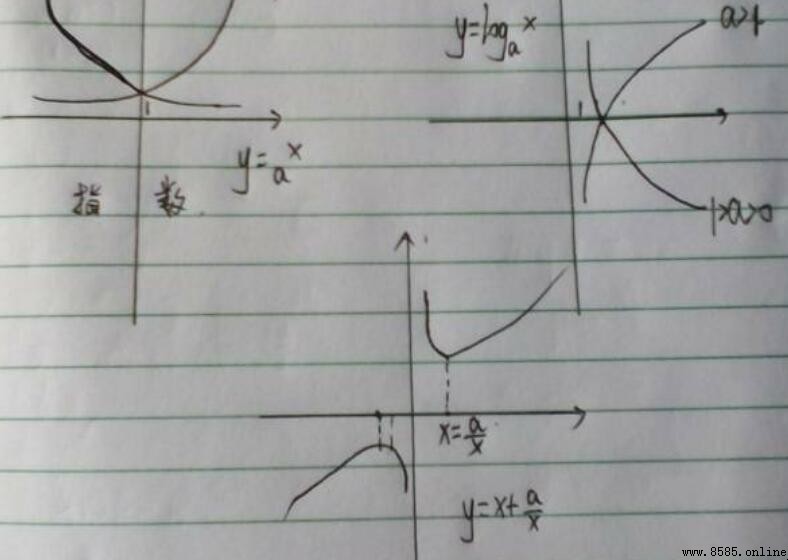 y=logₐx
a>1
1
1
y=aˣ
指数
1>a>0
x=a/x
y=x+a/x
www.8585.online